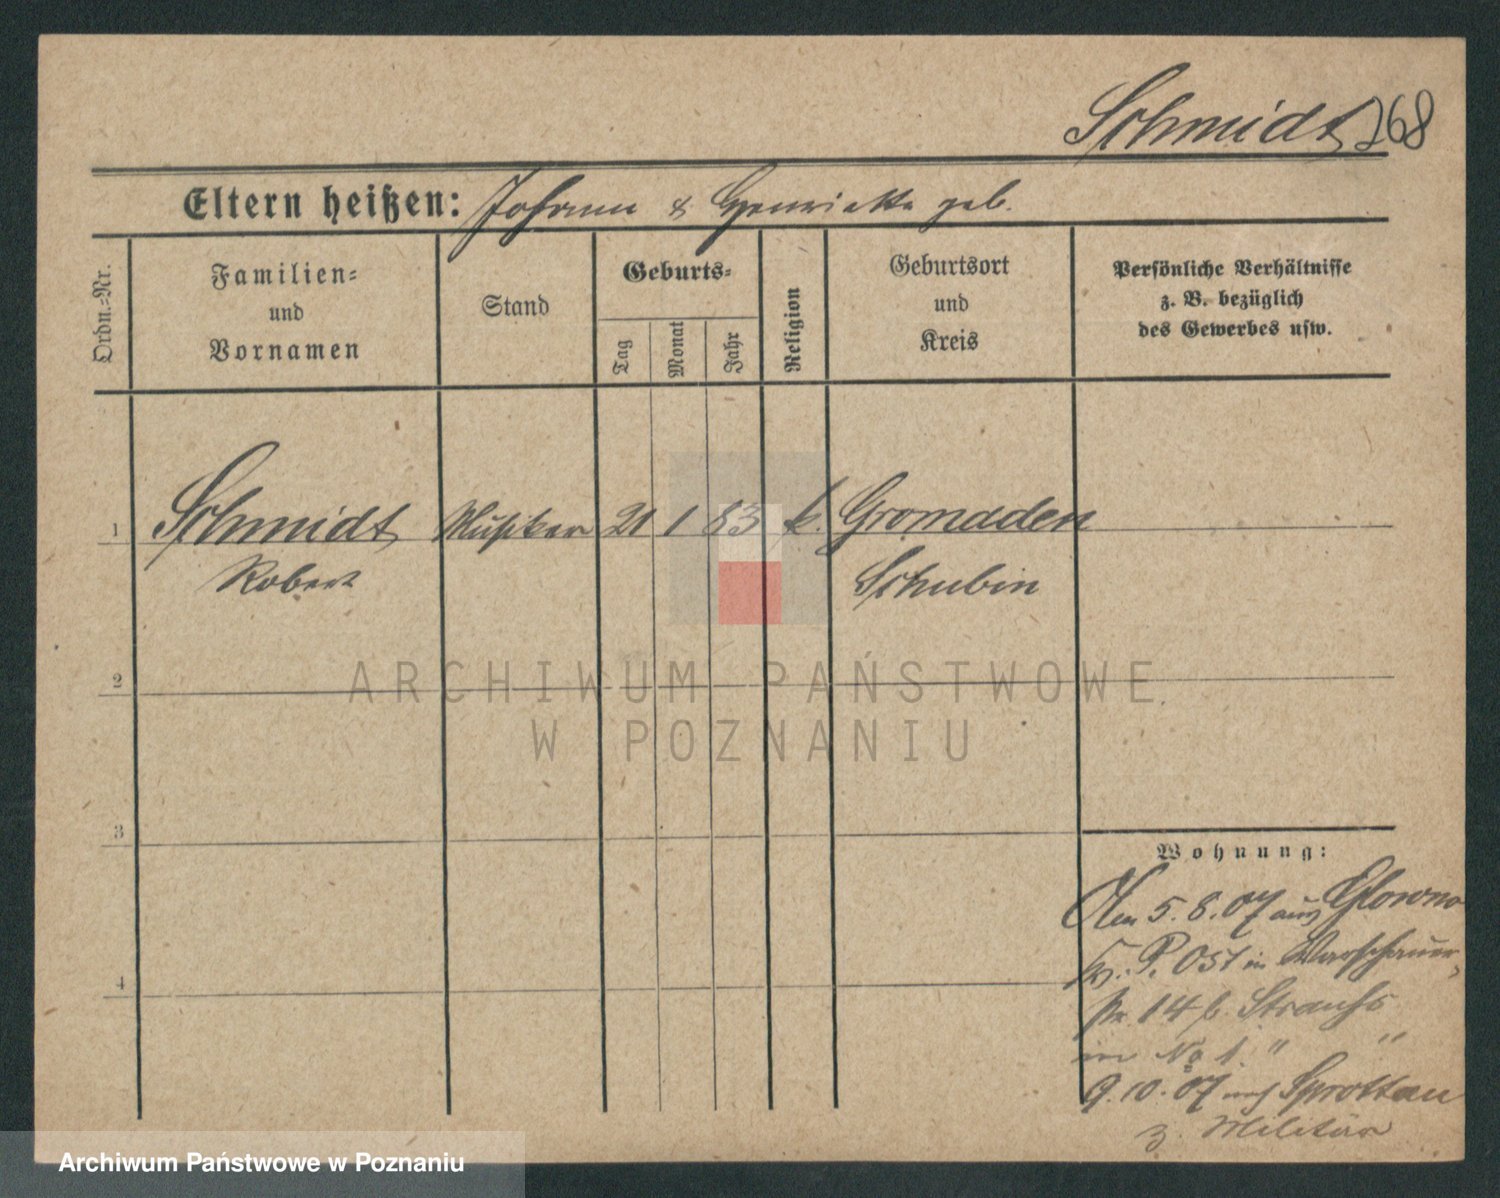 Schmidt 268
Eltern heißen: Johann & Henriette geb.
Ordn.-Nr.
Familien-
und
Vornamen
Stand
Geburts-
Tag
Monat
Jahr
Religion
Geburtsort
und
Kreis
Persönliche Verhältnisse
z. B. bezüglich
des Gewerbes usw.
1 Schmidt Musiker 21 1 83 k. Gromaden
Robert Schubin
2
3
4
Wohnung:
5. 8. 07 aus Glowno
P. Ost in Warschauer
14 b. Strauhs
in No 1. " "
9. 10. 07 nach Sprottau
z. Militär
ARCHIWUM PAŃSTWOWE
W POZNANIU
Archiwum Państwowe w Poznaniu